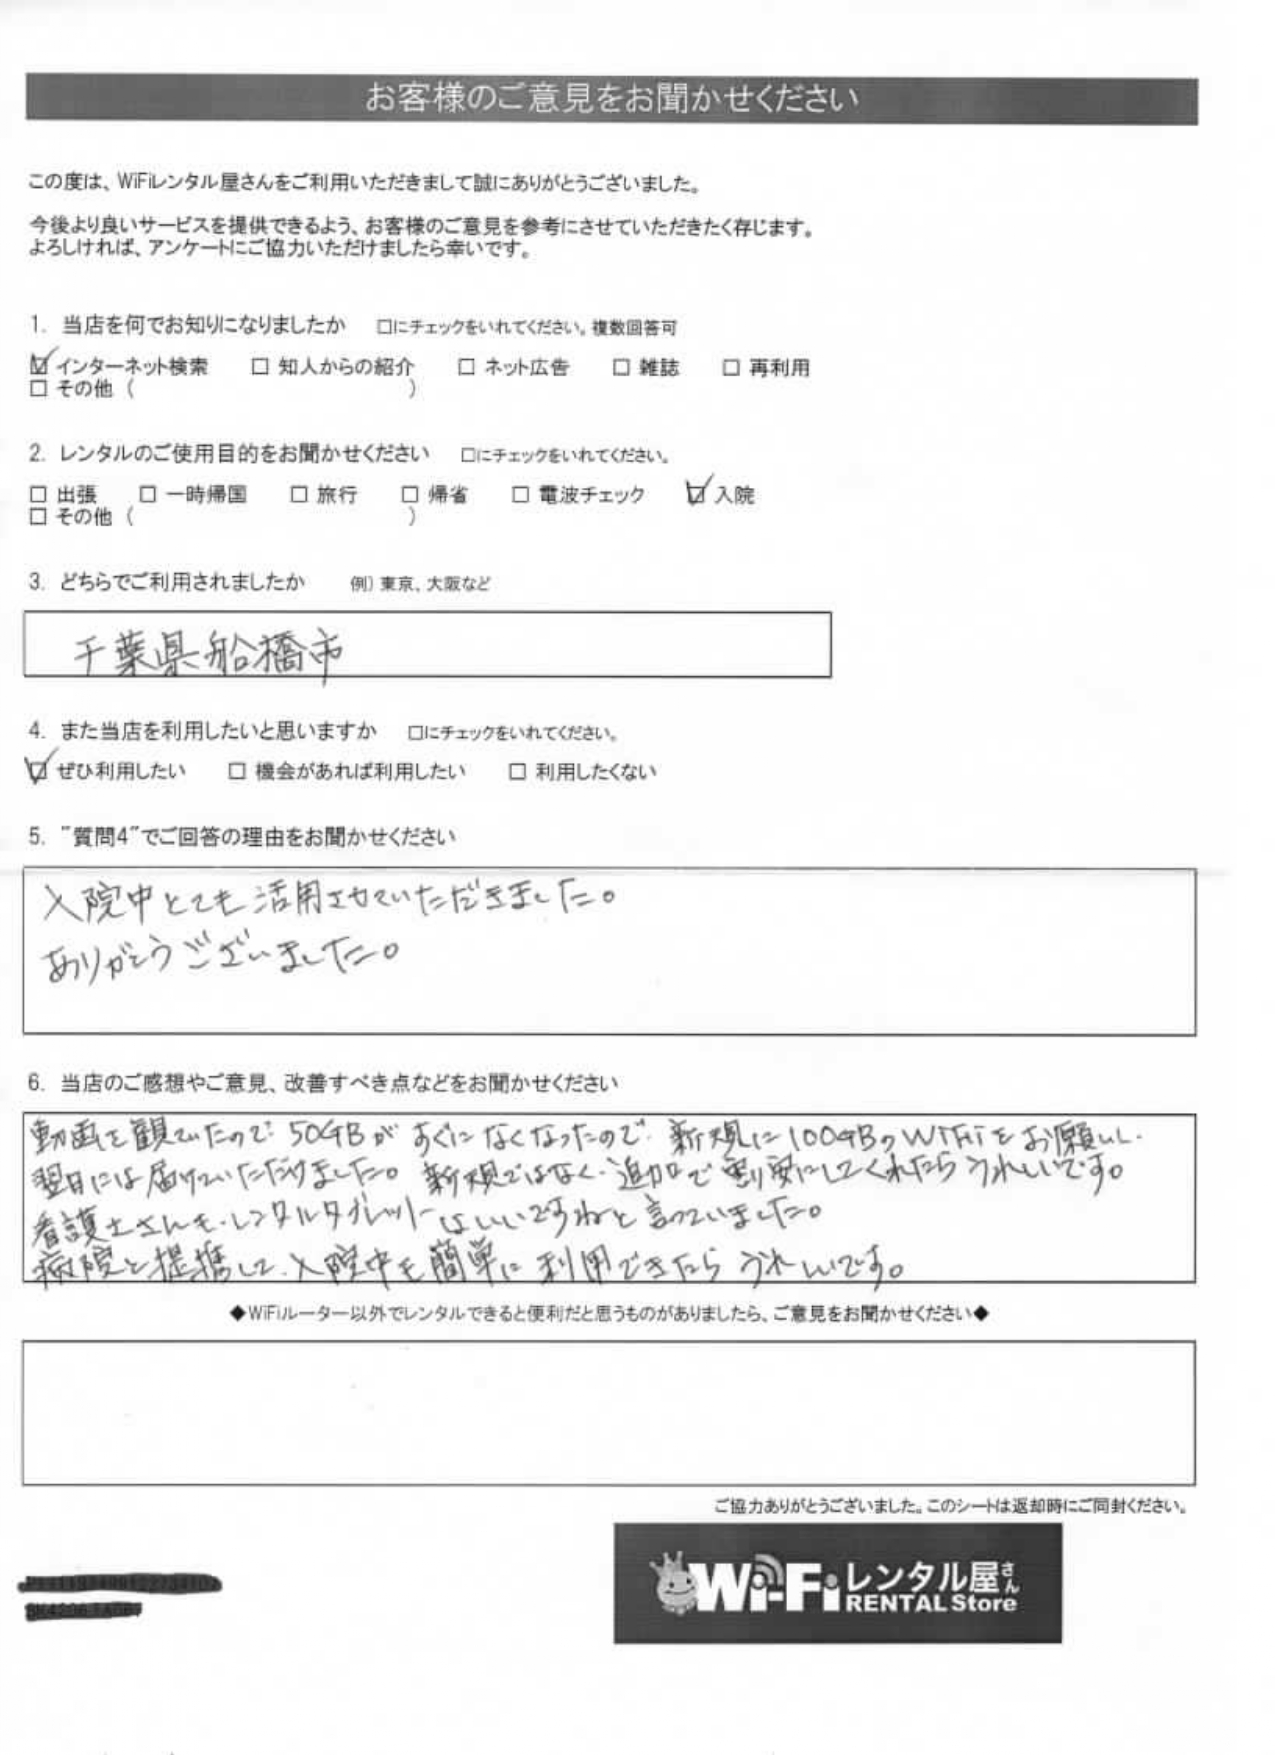 お客様のご意見をお聞かせください
この度は、WiFiレンタル屋さんをご利用いただきまして誠にありがとうございました。
今後より良いサービスを提供できるよう、お客様のご意見を参考にさせていただきたく存じます。
よろしければ、アンケートにご協力いただけましたら幸いです。
1. 当店を何でお知りになりましたか □にチェックをいれてください。複数回答可
☑インターネット検索 □ 知人からの紹介 □ ネット広告 □ 雑誌 □ 再利用
□ その他 ( )
2. レンタルのご使用目的をお聞かせください □にチェックをいれてください。
□ 出張 □ 一時帰国 □ 旅行 □ 帰省 □ 電波チェック ☑入院
□ その他 ( )
3. どちらでご利用されましたか 例) 東京、大阪など
千葉県船橋市
4. また当店を利用したいと思いますか □にチェックをいれてください。
☑ ぜひ利用したい □ 機会があれば利用したい □ 利用したくない
5. "質問4"でご回答の理由をお聞かせください
入院中とても活用させていただきました。
ありがとうございました。
6. 当店のご感想やご意見、改善すべき点などをお聞かせください
動画を観ていたので 50GBが すぐに なくなったので 新規に100GBのWiFiをお願いし、
翌日には届けていただけました。新規ではなく、追加で割安にしてくれたらうれしいです。
看護士さんも、レンタルタブレットはいいですねと言っていました。
病院と提携して、入院中も簡単に利用できたらうれしいです。
◆WiFiルーター以外でレンタルできると便利だと思うものがありましたら、ご意見をお聞かせください◆
ご協力ありがとうございました。このシートは返却時にご同封ください。
Wi-Fiレンタル屋さん
RENTAL Store